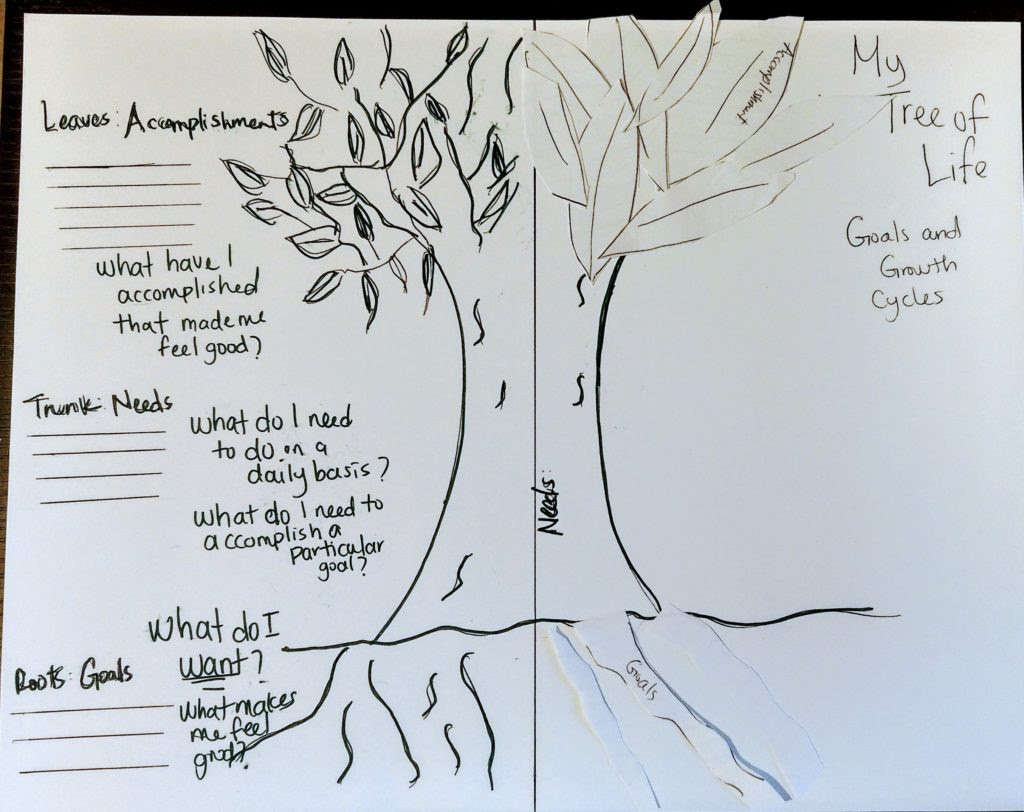 Leaves: Accomplishments
What have I
accomplished
that made me
feel good?
Trunk: Needs
What do I need
to do on a
daily basis?
What do I need to
accomplish a
particular
goal?
What do I
want?
Roots: Goals
What makes
me feel
good?
Accomplishment
Needs:
Goals
My
Tree of
Life
Goals and
Growth
Cycles